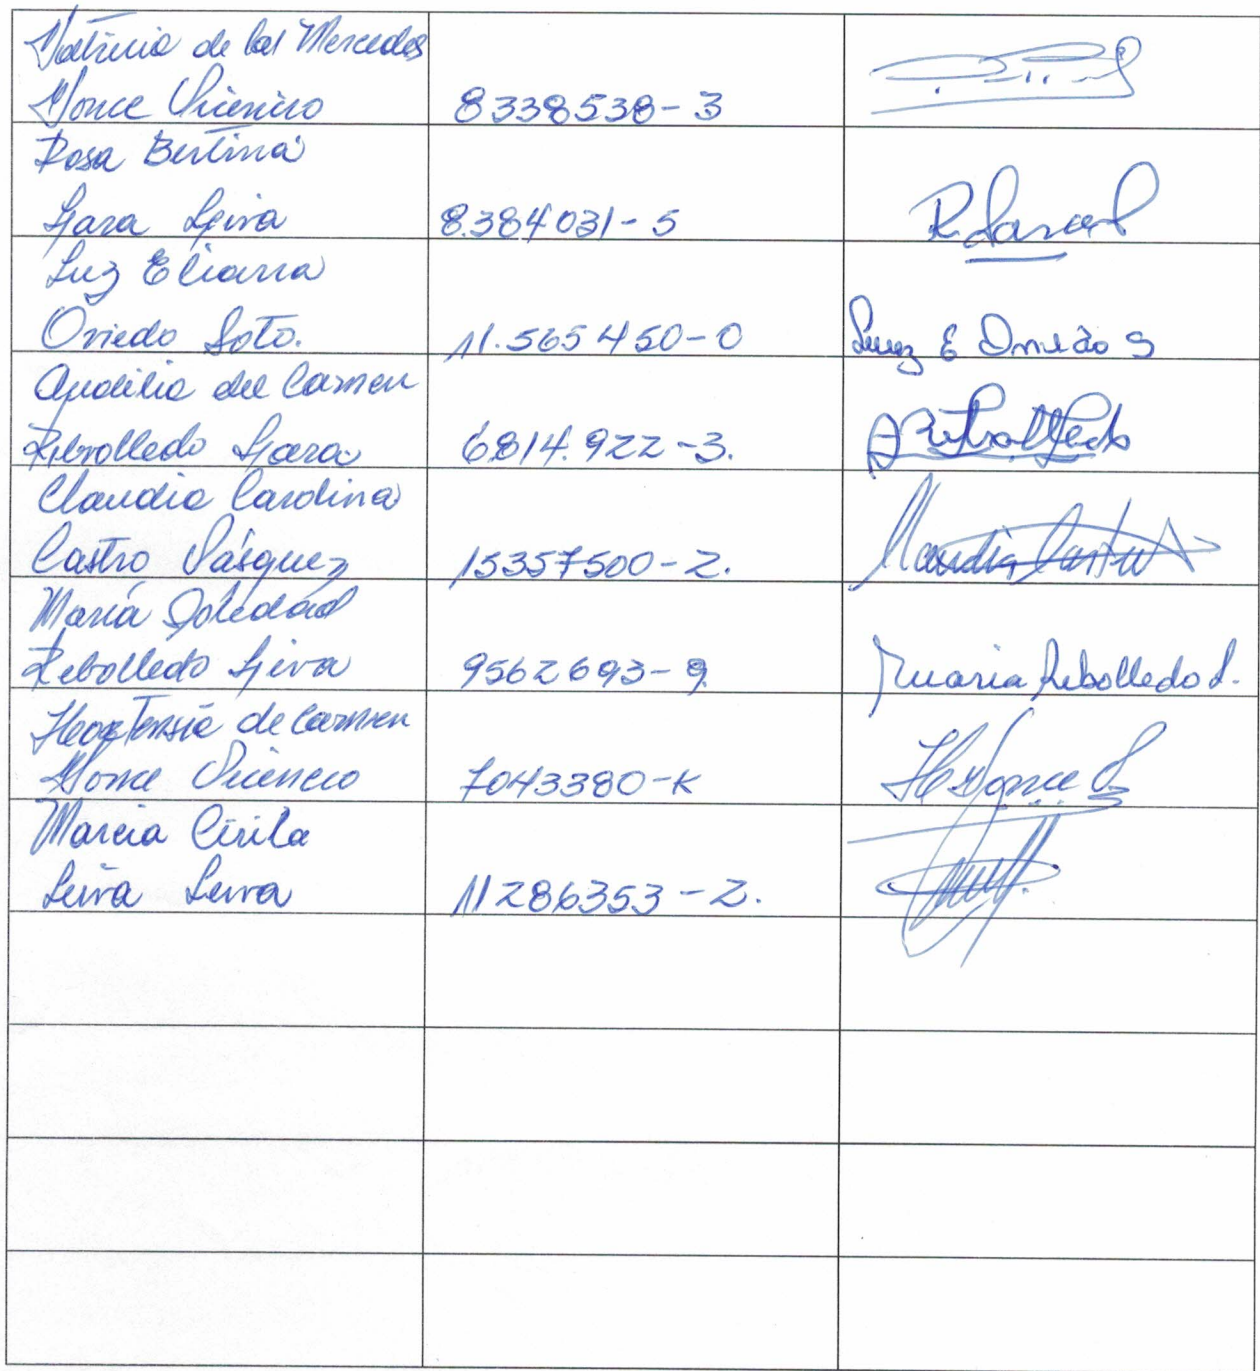 Patricia de las Mercedes
Ponce Vicencio 8338538-3
Rosa Bertina
Lara Leiva 8.384031-5 R. Lara L
Luz Eliana
Oviedo Soto. 11.565450-0 Luz E Oviedo S
Audilia del Carmen
Rebolledo Lara 6814.922-3. A Rebolledo
Claudia Carolina
Castro Vásquez 15357500-2. Claudia Castro
María Soledad
Rebolledo Leiva 9562693-9. Maria Rebolledo L.
Hortensia de Carmen
Ponce Vicencio 7043380-K H Ponce
Marcia Cirila
Leiva Leiva 11286353-2.